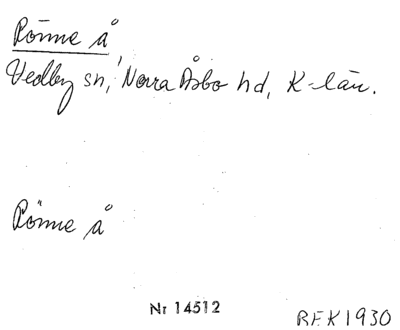 Rönne å
Vedby sn, Norra Åsbo hd, K-län.
Rönne å
Nr 14512
REK1930